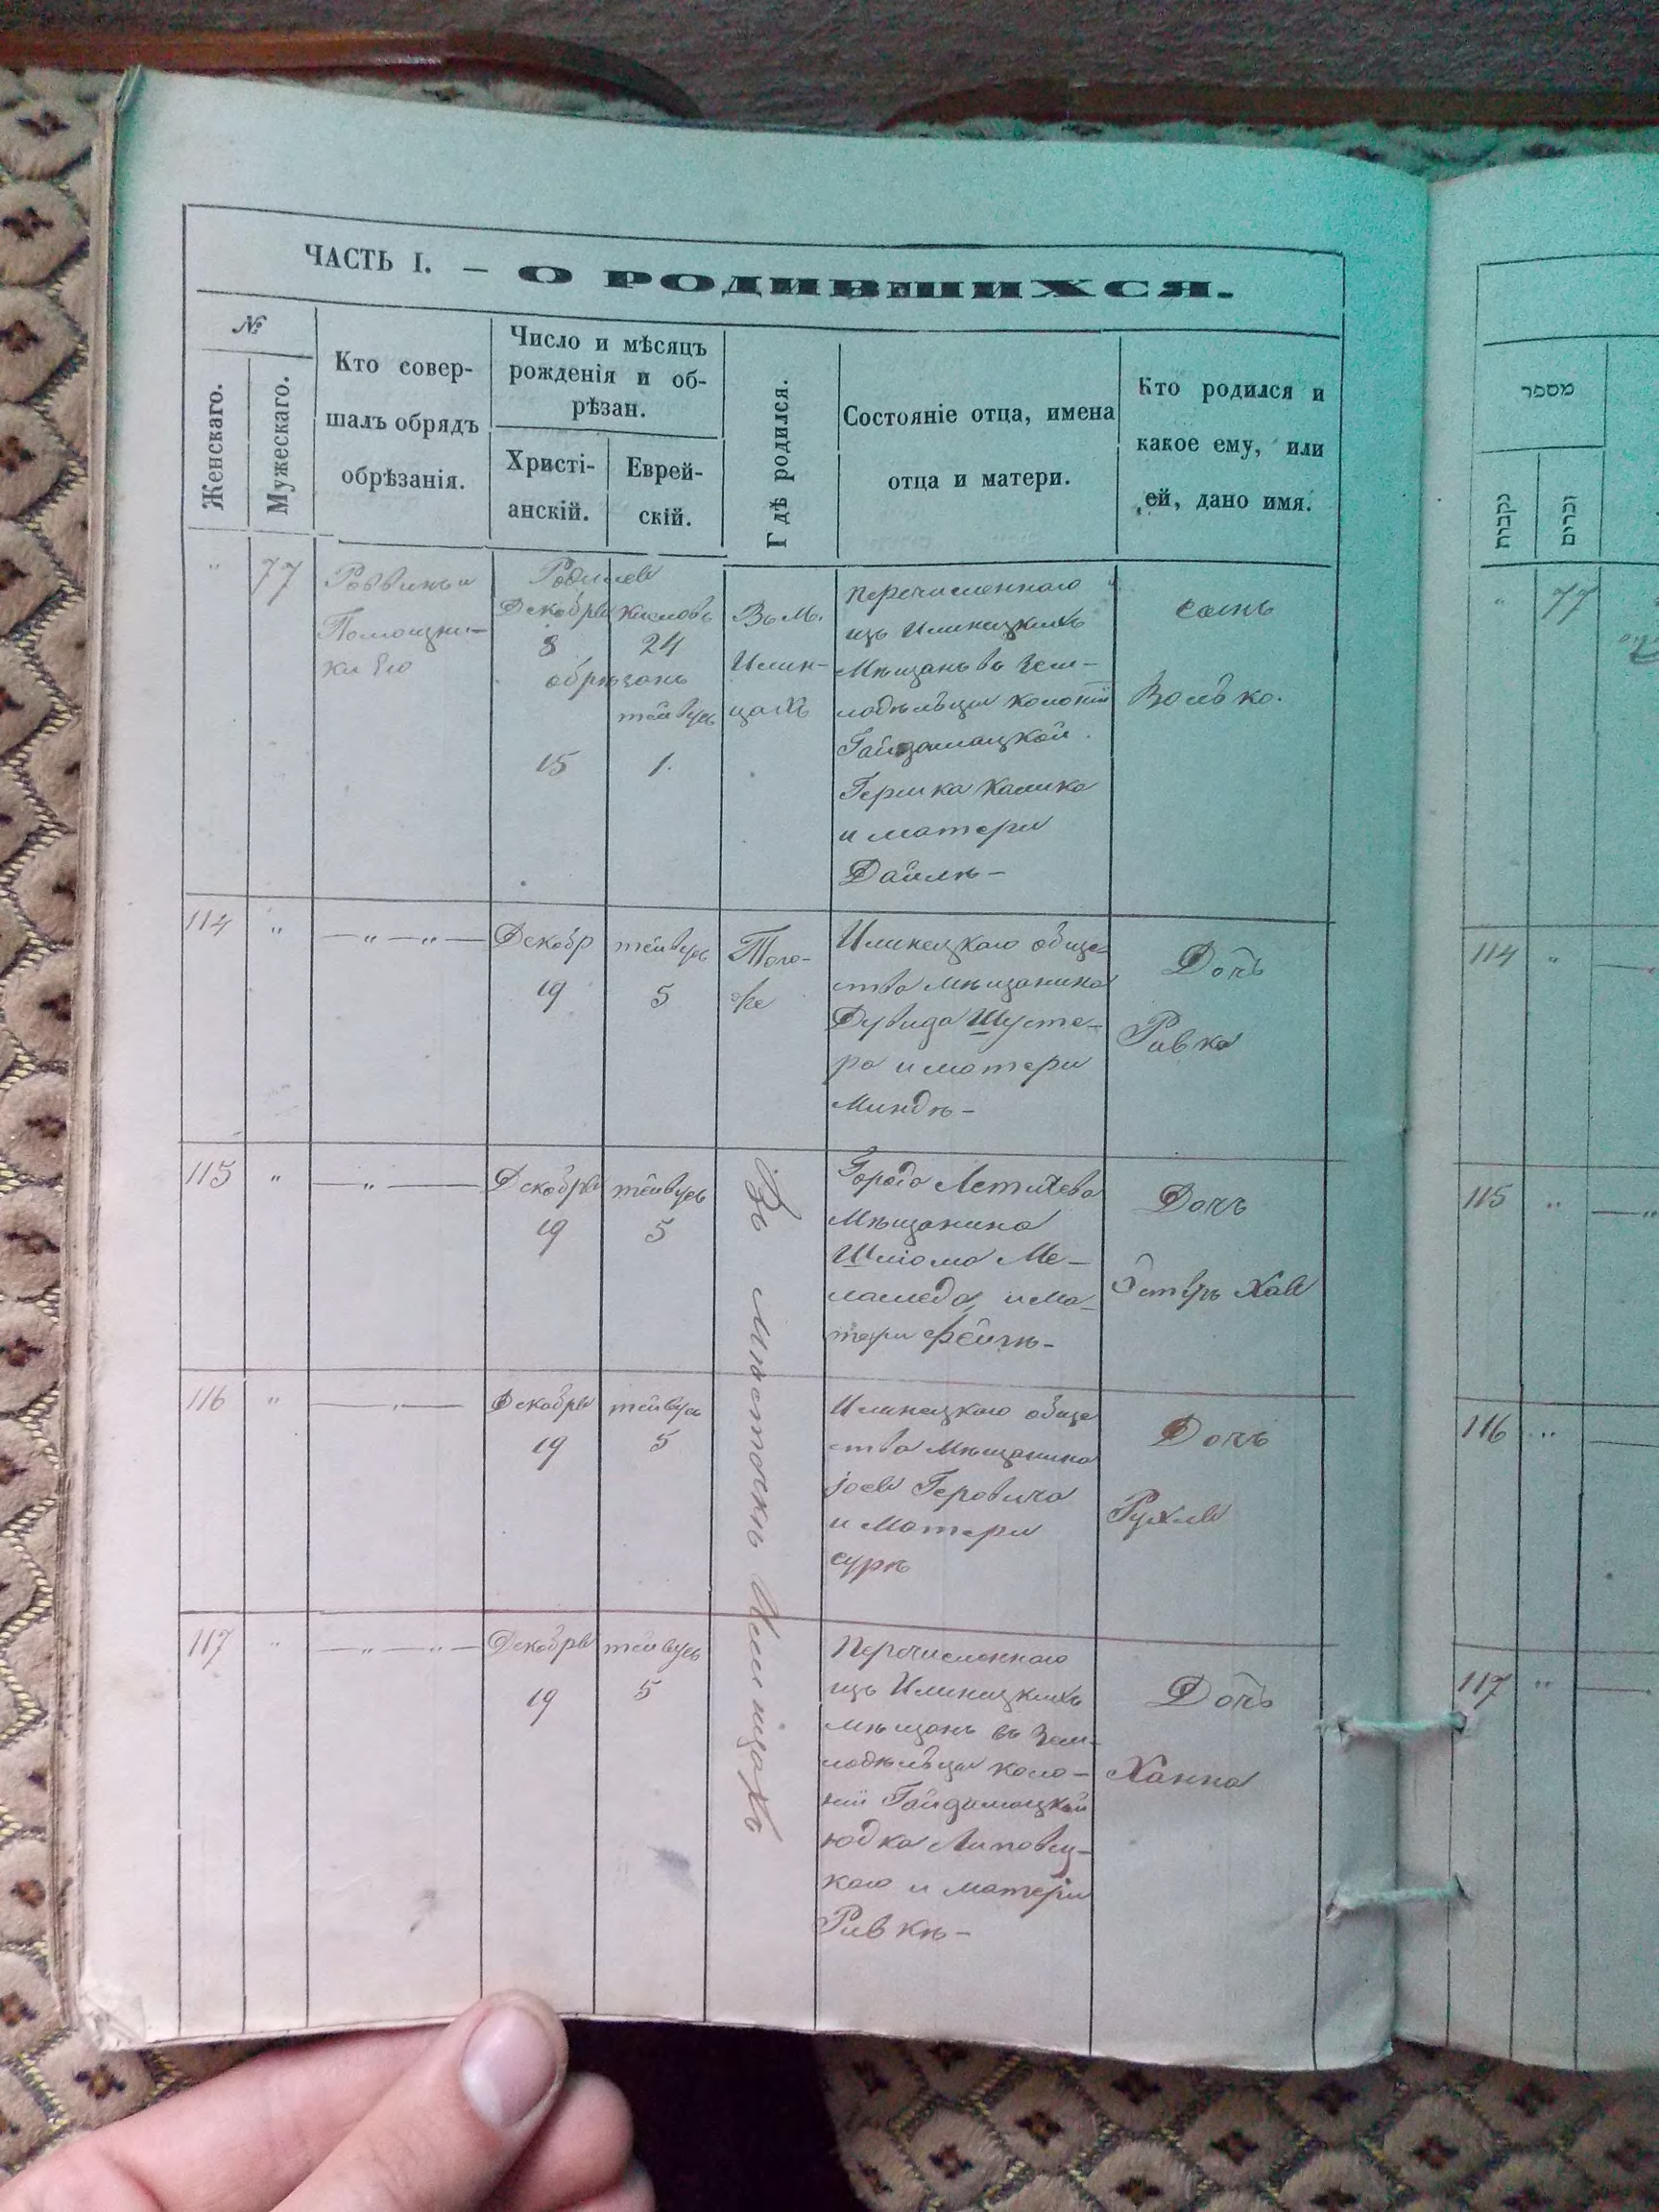 ЧАСТЬ I. — О РОДИВШИХСЯ.
№
Женскаго.
Мужескаго.
Кто совер-
шалъ обрядъ
обрѣзанія.
Число и мѣсяцъ
рожденія и об-
рѣзан.
Христі-
анскій.
Еврей-
скій.
Гдѣ родился.
Состояніе отца, имена
отца и матери.
Кто родился и
какое ему, или
ей, дано имя.
" 77
Раввинъ и
Помощни-
ки Его
Родился
Декабря
8
Кислова
24
обрѣзанъ
15
тейвусъ
1.
Въ М.
Илин-
цахъ
перечисленнаго
изъ Илинецкихъ
Мѣщанъ въ Зем-
ледѣльцы колоніи
Гайдамацкой
Гершка Калика
и матери
Дайлѣ —
сынъ
Волько.
114 " — " — " —
Декабр
19
тейвусъ
5
Того-
же
Илинецкаго обще-
ства мѣщанина
Дувида Шусте-
ра и матери
Миндѣ —
Дочь
Ривка
115 " — " —
Декабря
19
тейвусъ
5
Въ мѣстечкѣ Илинцахъ
Города Летичева
Мѣщанина
Шліома Ме-
ламеда, и ма-
тери Фейгѣ —
Дочь
Эстеръ Хая
116 " — " —
Декабря
19
тейвусъ
5
Илинецкаго обще
ства Мѣщанина
Іося Геровича
и Матери
сурѣ
Дочь
Рухля
117 " — " — " —
Декабря
19
тейвусъ
5
Перечисленнаго
изъ Илинецкихъ
мѣщанъ въ Зем-
ледѣльцы коло-
ніи Гайдамацкой
Юдка Липовец-
каго и матери
Ривкѣ —
Дочь
Ханна
מספר
נקבות
זכרים
" 77
114 "
115 "
116 "
117 "